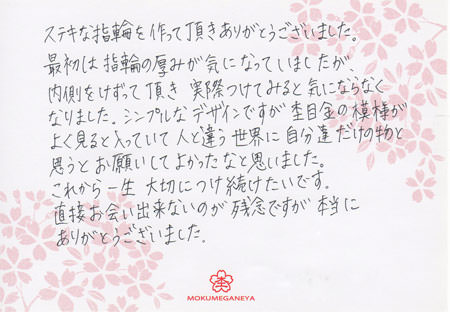 ステキな指輪を作って頂きありがとうございました。
最初は指輪の厚みが気になっていましたが、
内側をけずって頂き 実際つけてみると気にならなく
なりました。シンプルなデザインですが杢目金の模様が
よく見ると入っていて 人と違う世界に自分達だけの物と
思うとお願いしてよかったなと思いました。
これから一生 大切につけ続けたいです。
直接お会い出来ないのが 残念ですが 本当に
ありがとうございました。
MOKUMEGANEYA